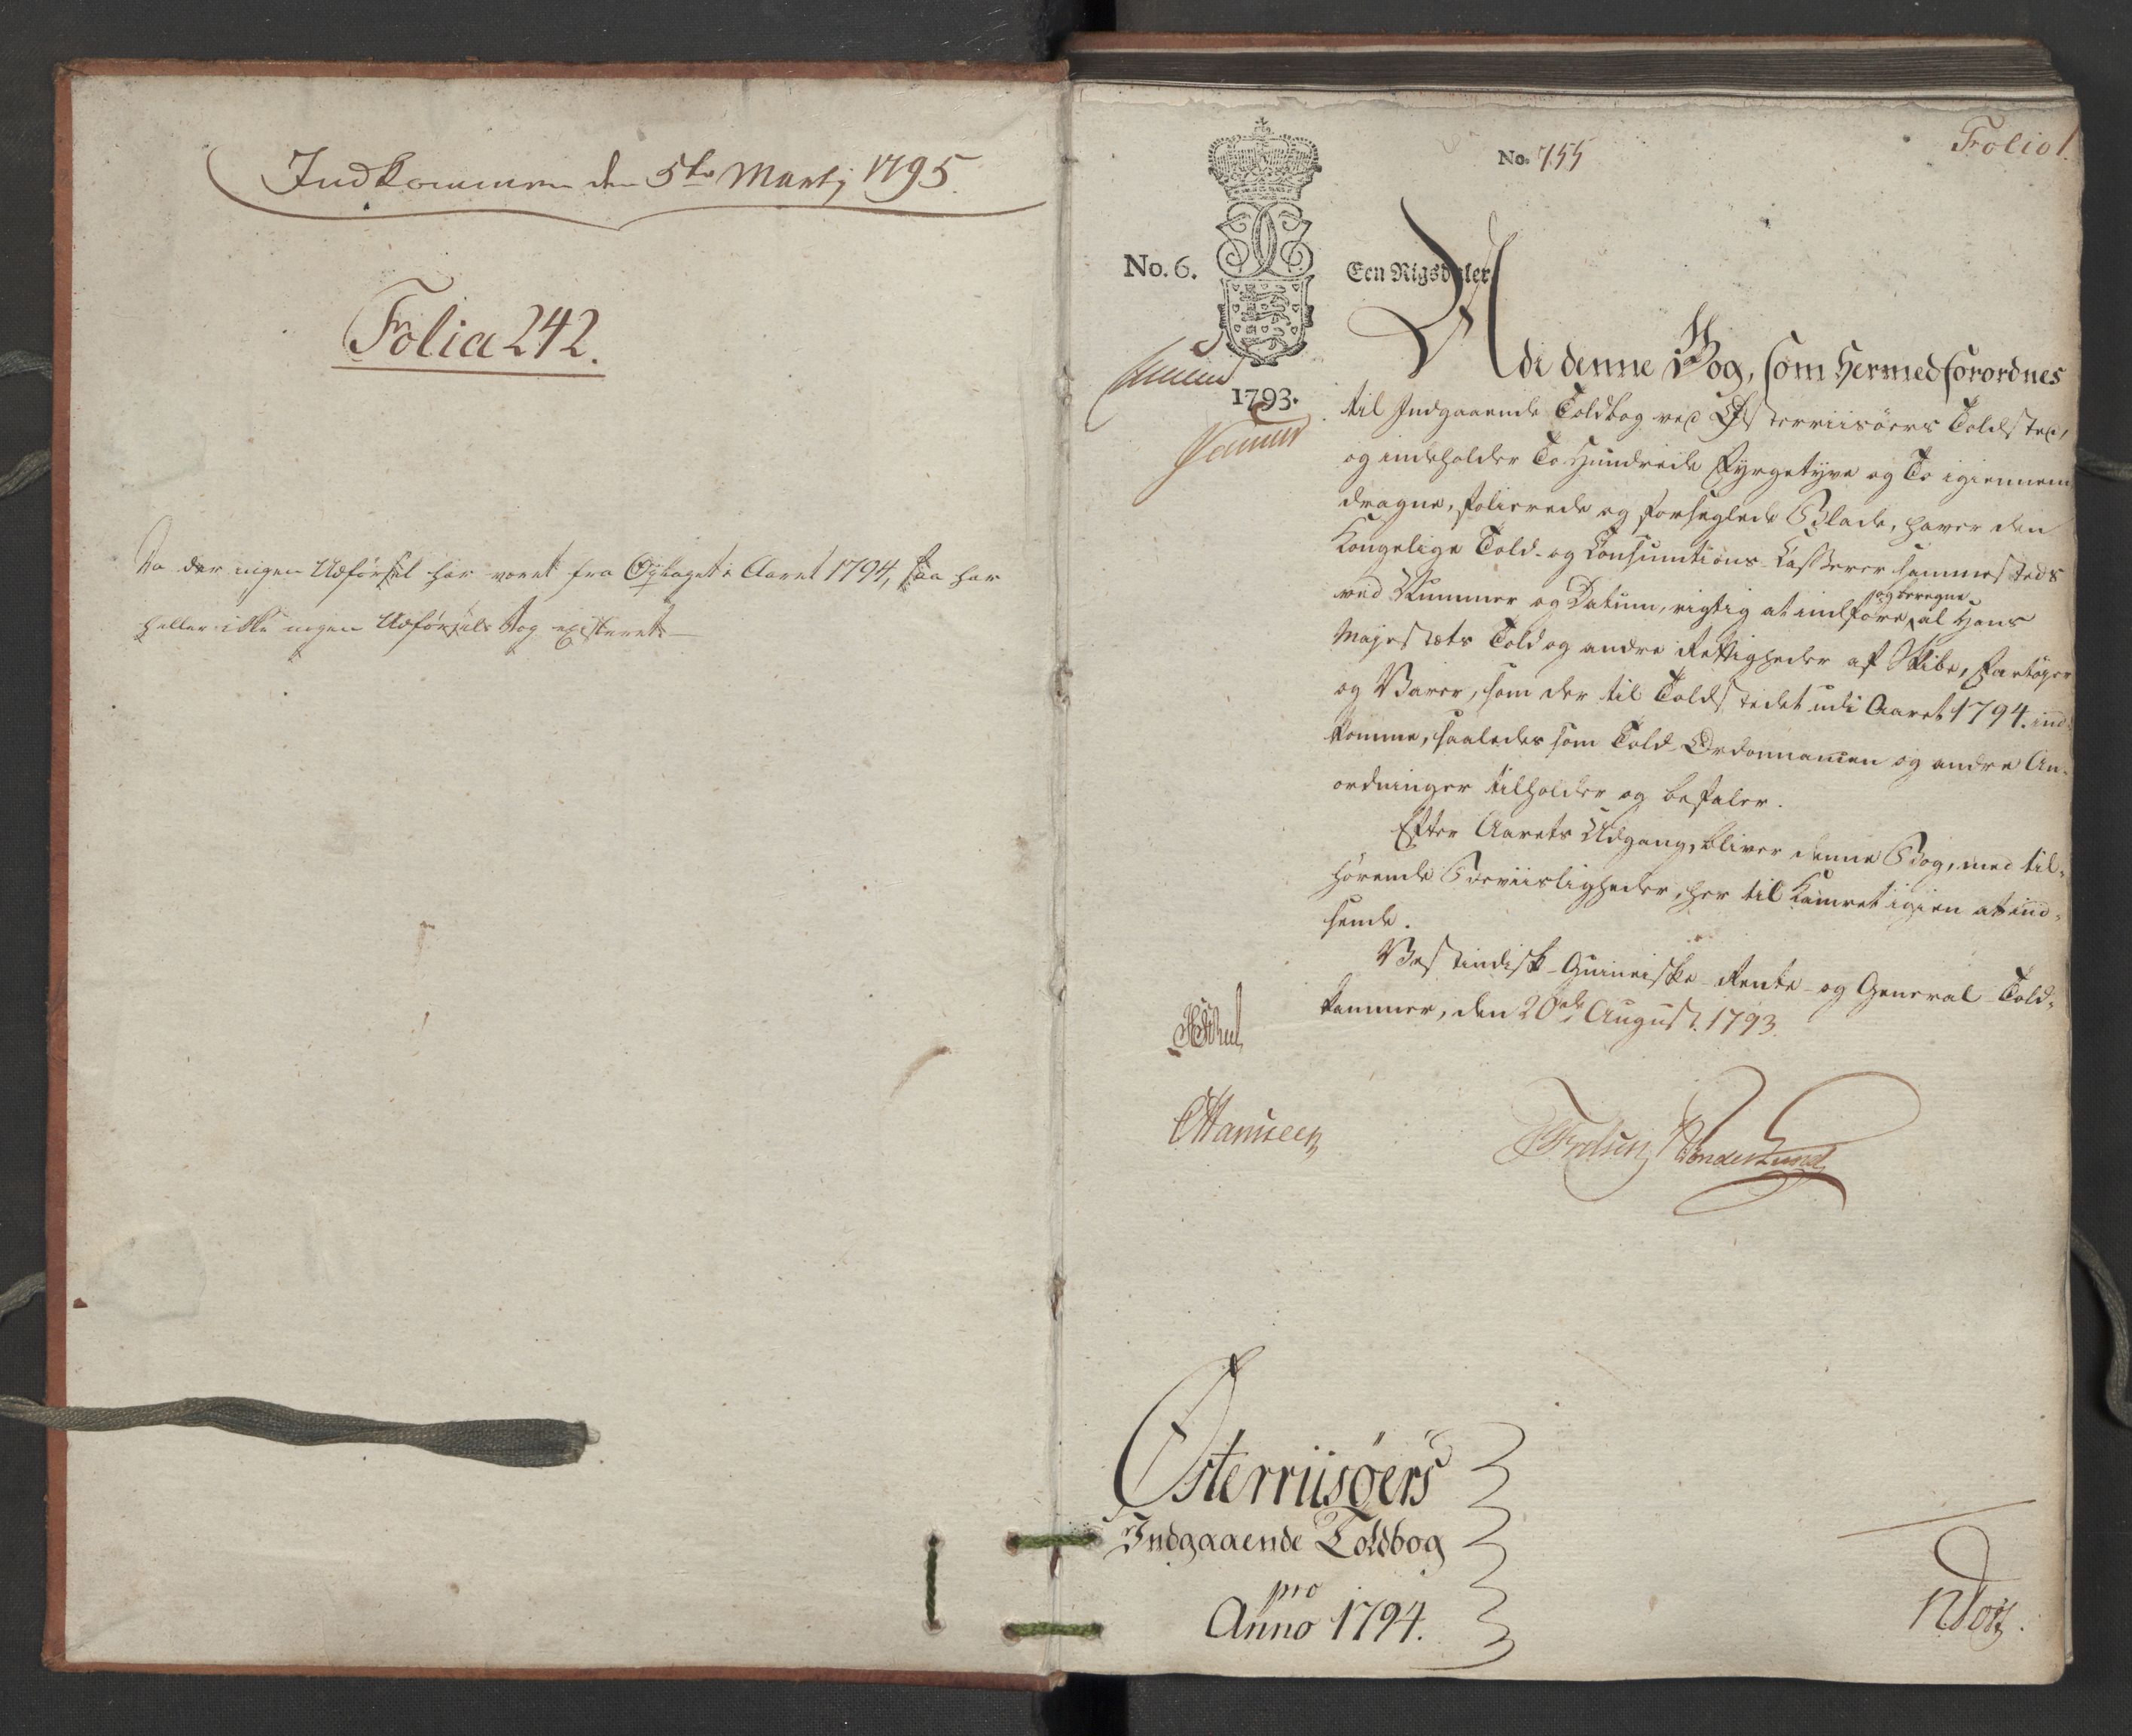 Indkommen den 5te Martj 1795.
Folia 242.
Da der ingen Udførsel har været fra Oplaget i Aaret 1794, saa har
heller ikke nogen Udførsels Bog existeret
Folio 1.
No. 755
No. 6.
Een Rigsdaler
1793.
Udi denne Bog, som hermed forordnes
til Indgaaende Toldbog ved Østerriisöers Toldsted,
og indeholder To Hundrede Fyrgetyve og To igiennem
dragne, folierede og forseglede Blade, haver den
Kongelige Told- og Consumtions-Casserer sammesteds
ved Nummer og Datum, rigtig at indføre og beregne al Hans
Majestæts Told og andre Rettigheder af Skibe, Fartöyer
og Varer, som der til Toldstedet udi Aaret 1794. ind-
komme, saaledes som Told-Ordonnancen og andre An-
ordninger tilholder og befaler.
Efter Aarets Udgang, bliver denne Bog, med til-
hørende Beviisligheder, her til Kamret igien at ind-
sende.
Vestindisk-Guineiske Rente- og General-Told-
kammer, den 20de August. 1793.
Sönderlund
Østerriisøers
Indgaaende Toldbog
pro
Anno 1794.